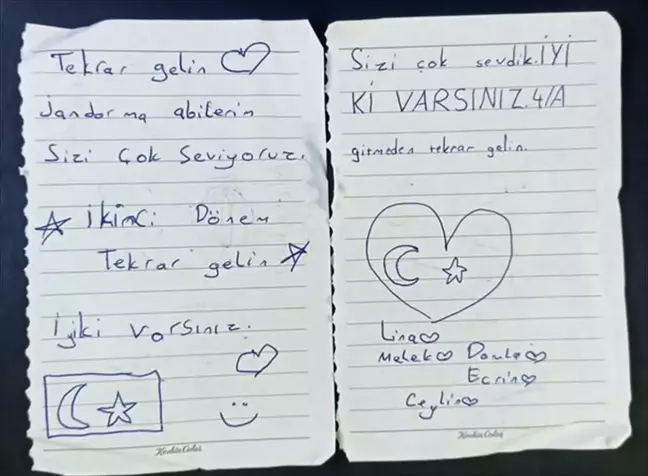 Tekrar gelin
Jandarma abilerim
Sizi Çok Seviyoruz.
İkinci Dönem
Tekrar gelin
İyiki varsınız.
Sizi çok sevdik.İYİ
Kİ VARSINIZ.4/A
gitmeden tekrar gelin.
Lina
Melek
Ecrin
Ceylin